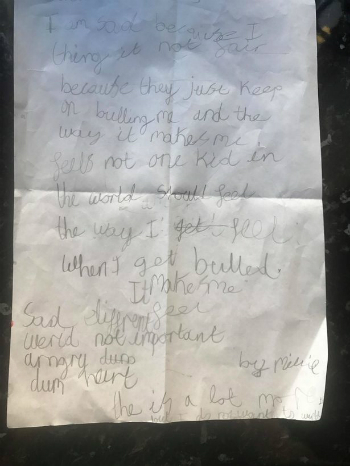 I'm sad because I
thing it not fair
because they just keep
on bulling me and the
way it makes me
feels not one kid in
the world should feel
the way I get feel
when I get bulled.
It Makes me
Sad different feel
werid not important
arngry dum
dum hurt
by Millie
the is a lot mo